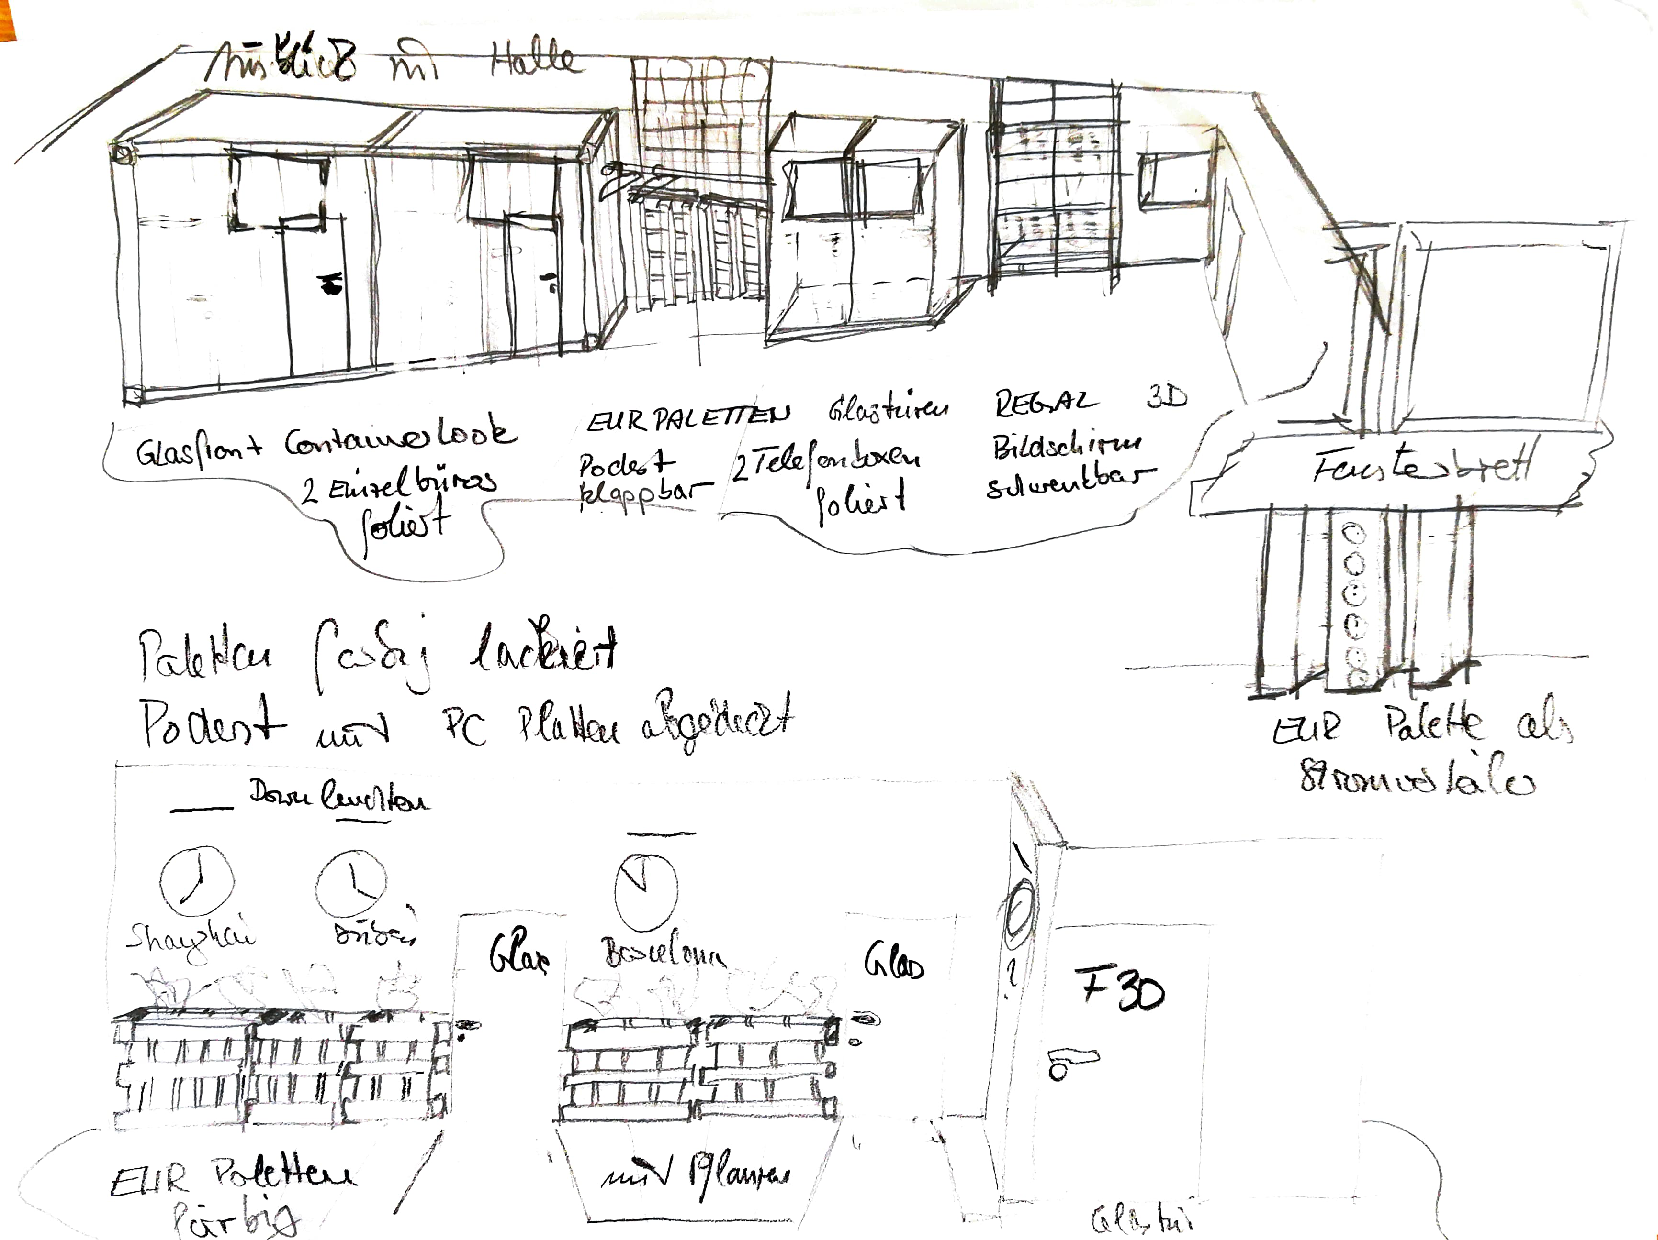 Ausblick in Halle
Glasfront Containerlook
2 Einzelbüros
foliert
EUR PALETTEN
Podest
klappbar
Glastüren
2 Telefonboxen
foliert
REGAL 3D
Bildschirm
schwenkbar
Fensterbrett
EUR Palette als
Stromverteiler
Paletten farbig lackiert
Podest mit PC Platten abgedeckt
Downleuchten
Shanghai
Dubai
Barcelona
Glas
Glas
F30
EUR Paletten
färbig
mit Pflanzen
Glastür